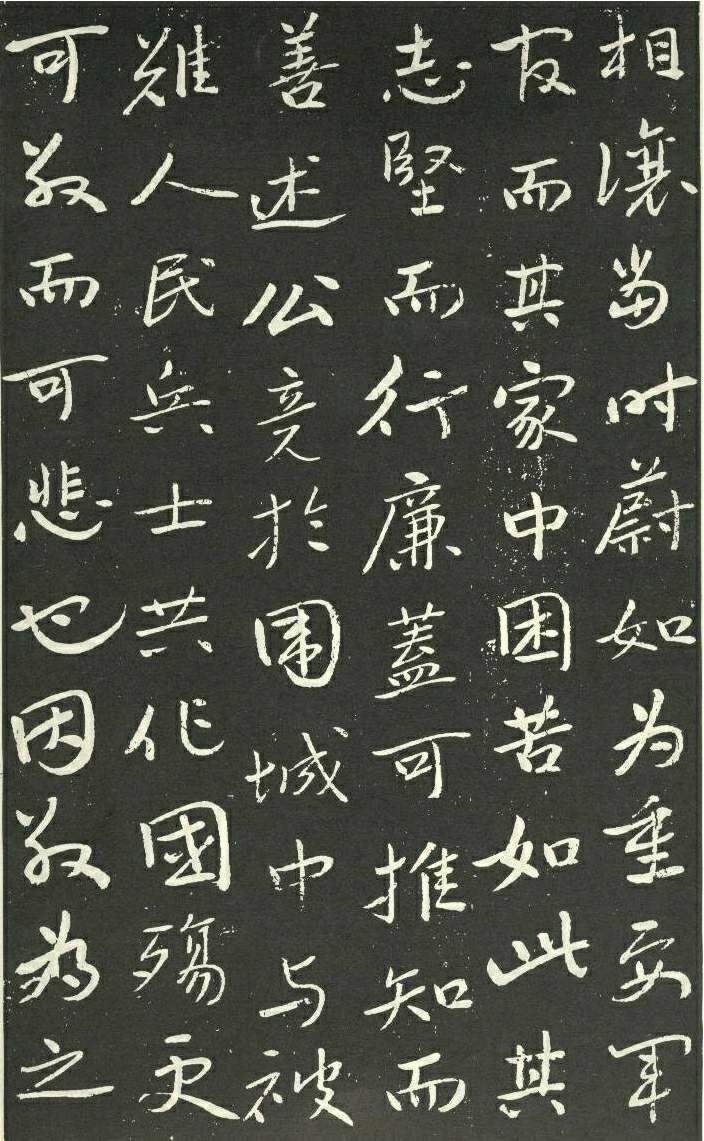 相讓當时蔚如为重要军
官而其家中困苦如此其
志堅而行廉蓋可推知而
善述公竟於围城中与被
難人民兵士共作國殤更
可敬而可悲也因敬為之